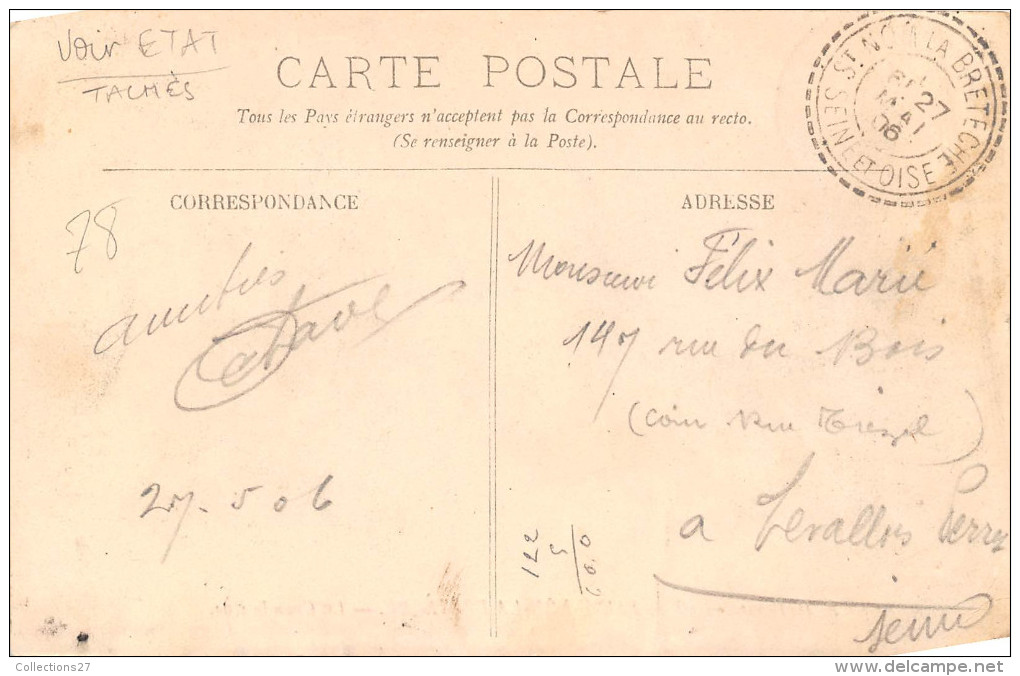 Voir ETAT
TACHÈS
CARTE POSTALE
Tous les Pays étrangers n'acceptent pas la Correspondance au recto.
(Se renseigner à la Poste).
ST NOM LA BRETECHE
27
MAI
06
SEINE ET OISE
CORRESPONDANCE
ADRESSE
78
amitiés
27. 5 06
Monsieur Félix Marie
147 rue du Bois
(coin Rue
a Levallois Perret
Seine
122
5
0.0
Collections27
delcampe.net